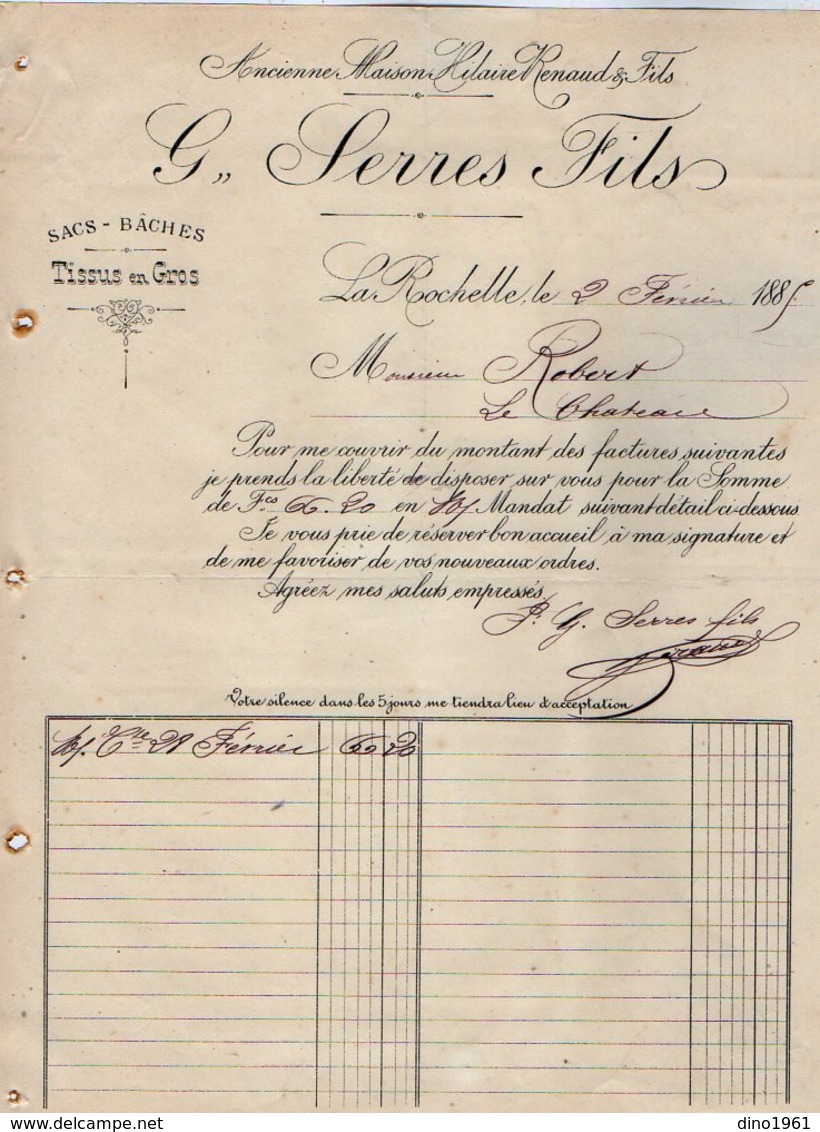 Ancienne Maison Hilaire Renaud & Fils
G,, Serres Fils
SACS - BÂCHES
Tissus en Gros
La Rochelle, le 2 Février 1885
Monsieur Robert
Le Chateau
Pour me couvrir du montant des factures suivantes
je prends la liberté de disposer sur vous pour la Somme
de Fcs 66.20 en Mandat suivant détail ci-dessous
Je vous prie de réserver bon accueil à ma signature et
de me favoriser de vos nouveaux ordres.
Agréez mes saluts empressés.
P. G. Serres fils
Votre silence dans les 5 jours me tiendra lieu d'acceptation
28 Février 66 20
dino1961